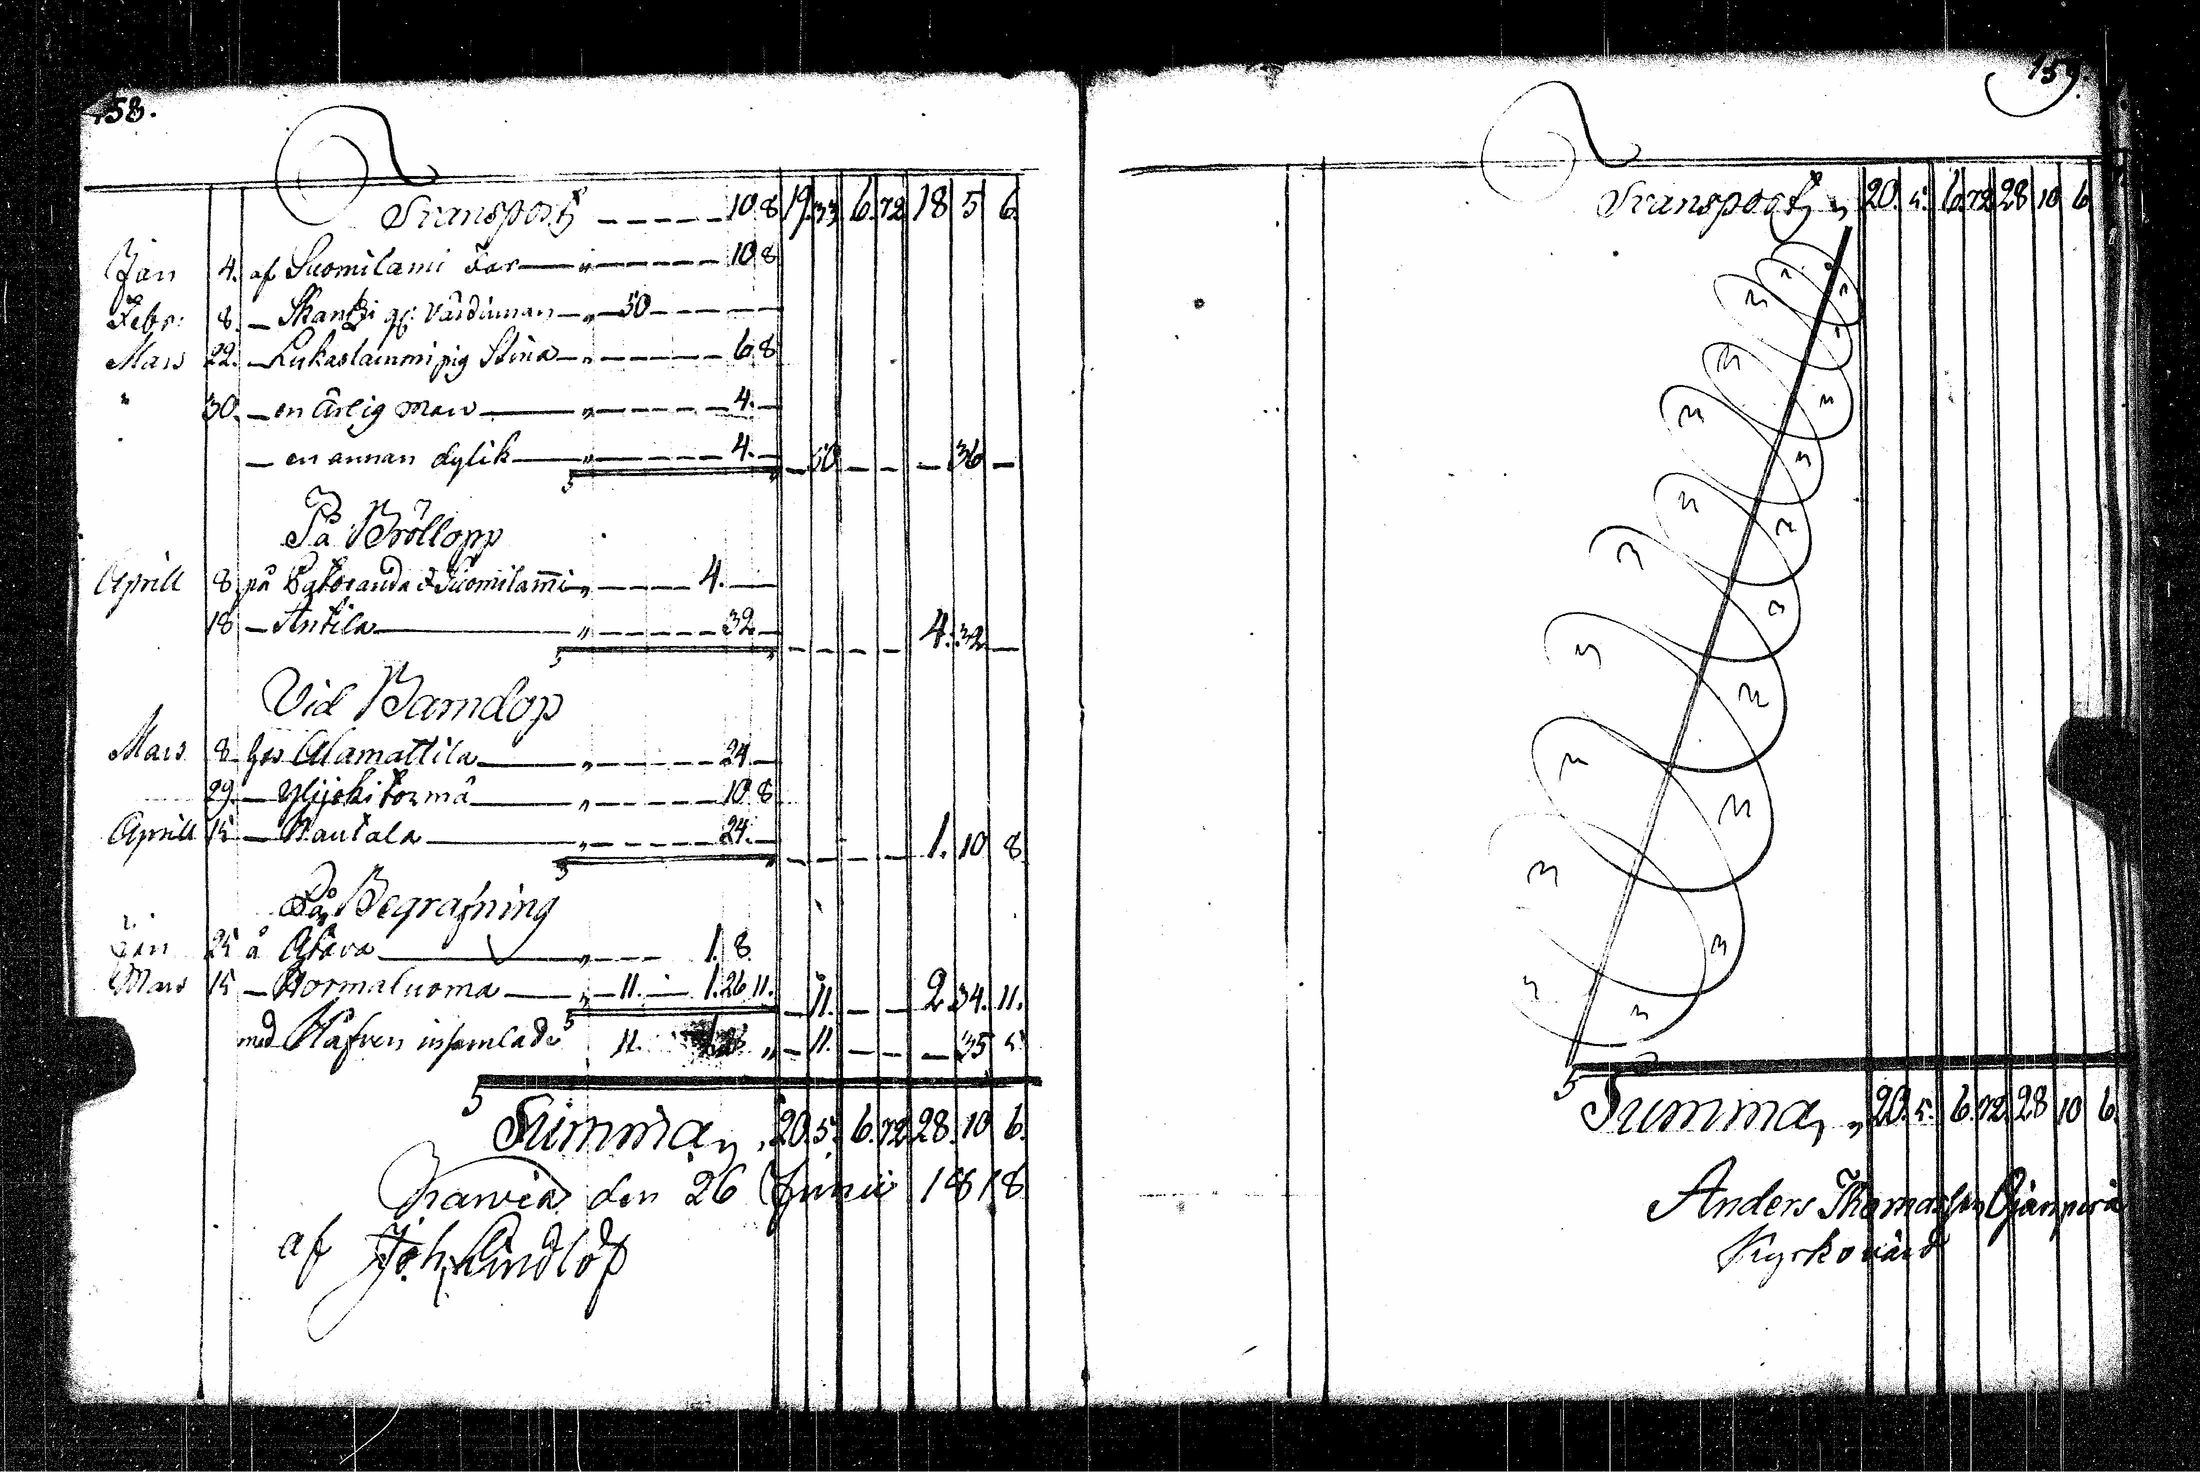 158.
Transport 10 8 19 33 6. 72 18 5 6.
Jan 4. af Suomilami Far „ 10 8
Febr: 8. Skantzi gl: Värdinnan „ 50
Mars 22. Lukaslammi pig Stina „ 6 8
" 30. en ärlig man „ 4.
en annan dylik „ 4. 50 36
På Bröllopp
Aprill 8 på d Suomilam̄i „ 4.
18 Antila „ 32 4. 32
Vid Barndop
Mars 8 hos Alamattila „ 24
29. Ylijoki Tormä „ 10 8
Aprill 15 Rautala „ 24. 1. 10 8
På Begrafning
Jan 25 å 1. 8.
Mars 15 Hormaluoma „ 11. 1. 26 11. 11. 2 34. 11.
med Håfven insamlade 11. „ 11. 35 5
Summa 20. 5. 6. 72 28. 10 6.
den 26 Junii 1818
af Joh. Lindlöf
159.
Transport „ 20. 5. 6. 72 28 10 6.
Summa „ 20. 5. 6. 72. 28 10 6.
Anders Thomasson Ojanperä
Kyrkovärd